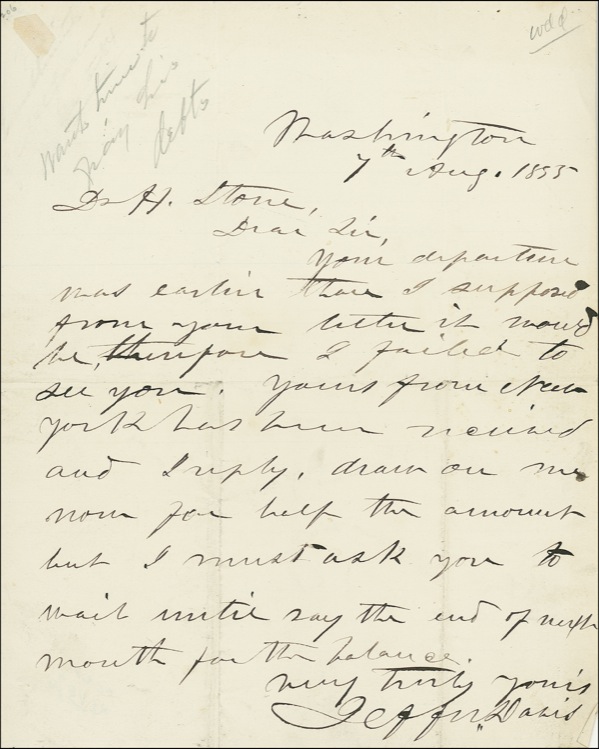 Wants time to
pay his
debts
Washington
7th Aug. 1855
Dr H. Stone,
Dear Sir,
Your departure
was earlier than I supposed
from your letter it would
be, therefore I failed to
see you. Yours from New
York has been received
and I reply, draw on me
now for half the amount
but I must ask you to
wait until say the end of next
month for the balance.
very truly yours
Jeffn. Davis